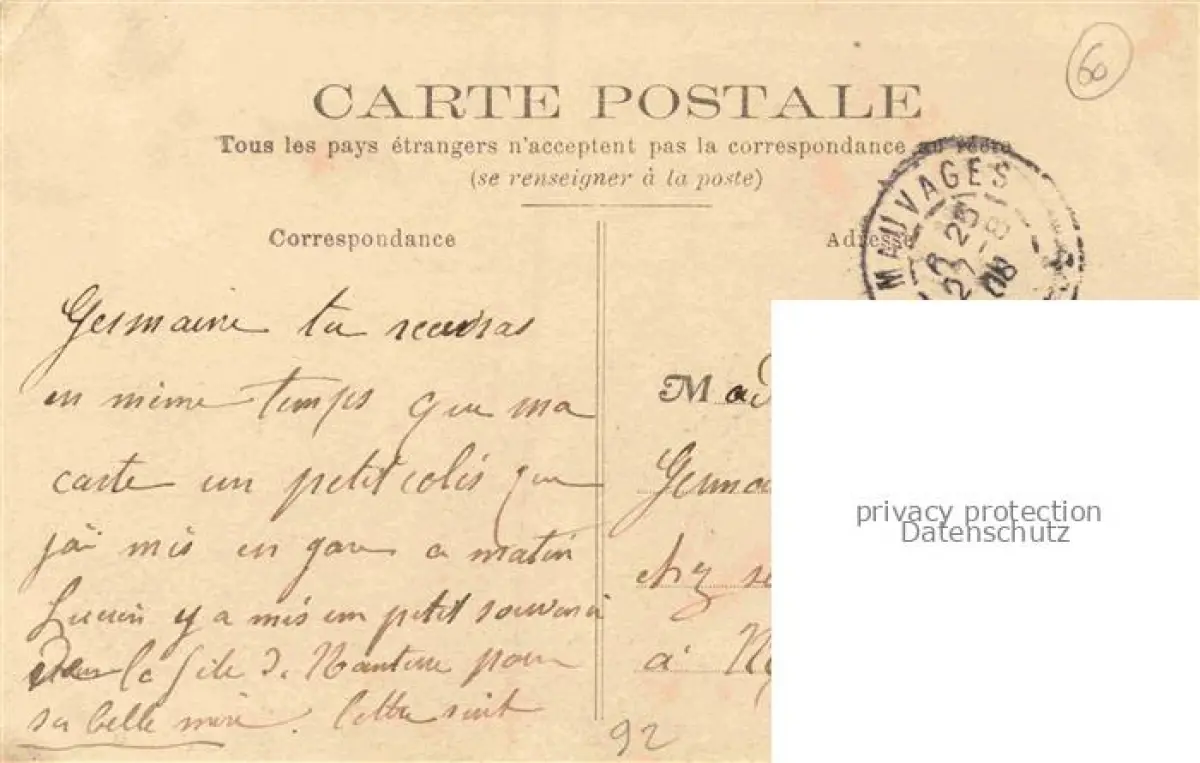 60
CARTE POSTALE
Tous les pays étrangers n'acceptent pas la correspondance au recto
(se renseigner à la poste)
MAUVAGES
25
27 -8
08
Correspondance
Adresse
Germaine tu recevras
en même temps que ma
carte un petit colis que
j'ai mis en gare ce matin
Lucien y a mis un petit souvenir
de la fête de Nanterre pour
sa belle mère. Lettre suit
Mad
Germa
chez
à
92
privacy protection
Datenschutz